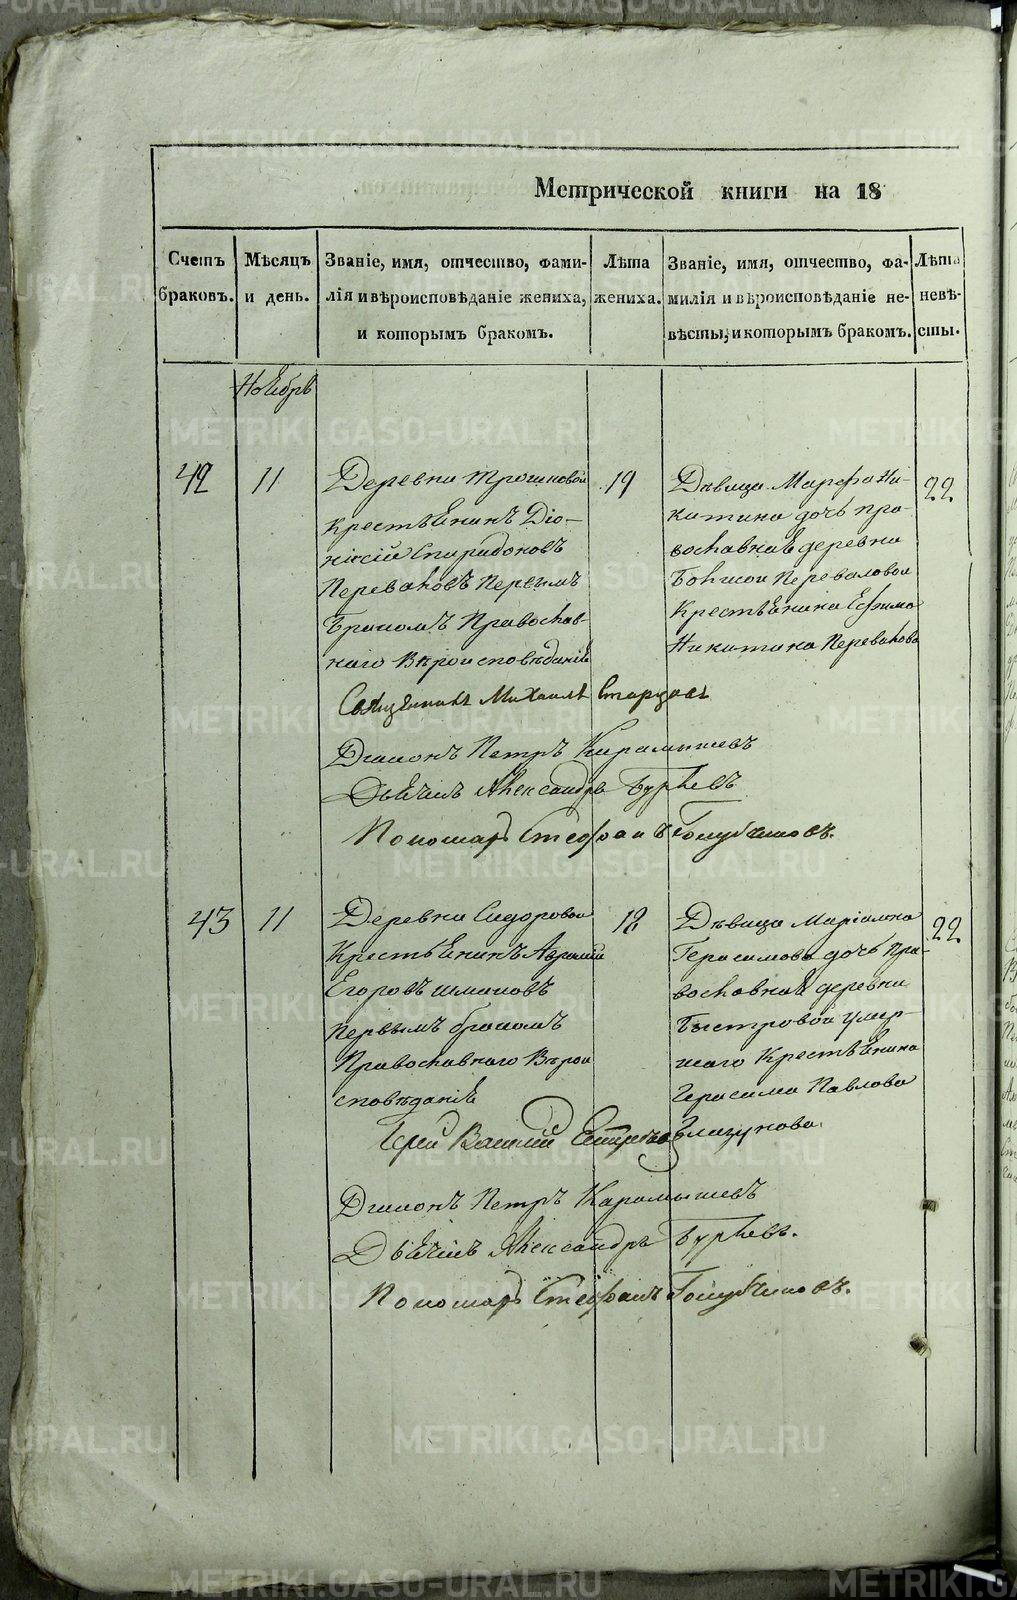 Метрической книги на 18
Счетъ браковъ.
Мѣсяцъ и день.
Званіе, имя, отчество, фами-
лія и вѣроисповѣданіе жениха,
и которымъ бракомъ.
Лѣта
жениха.
Званіе, имя, отчество, фа-
милія и вѣроисповѣданіе не-
вѣсты, и которымъ бракомъ.
Лѣта
невѣ-
сты.
Ноебрь
42
11
Деревни Трошковой
крестьенинъ Діо-
нисій Спиридоновъ
Переваловъ Первымъ
Бракомъ Православ-
наго Вѣроисповѣданіе
19
Дѣвица Марфа Ни-
китина дочь пра-
вославнае деревни
Большой Переваловой
Крестьенина Ефима
Никитина Перевалова
22
Священникъ Михаилъ Старцовъ
Диаконъ Петръ Карамышевъ
Дьечикъ Александръ Бурлевъ
Пономарь Стефанъ Голубчиковъ.
43
11
Деревни Сидоровой
Крестьенинъ Аврамій
Егоровъ Шмаковъ
первымъ бракомъ
Православнаго Вѣрои
сповѣданіе
18
Дѣвица Маріамна
Герасимова дочь пра-
вославнае деревни
Быстровой умер-
шаго Крестьенина
Герасима Павлова
Глазунова.
22
Іерей Василий
Диаконъ Петръ Карамышевъ
Дьечикъ Александръ Бурлевъ.
Пономарь Стефанъ Голубчиковъ.
METRIKI.GASO-URAL.RU